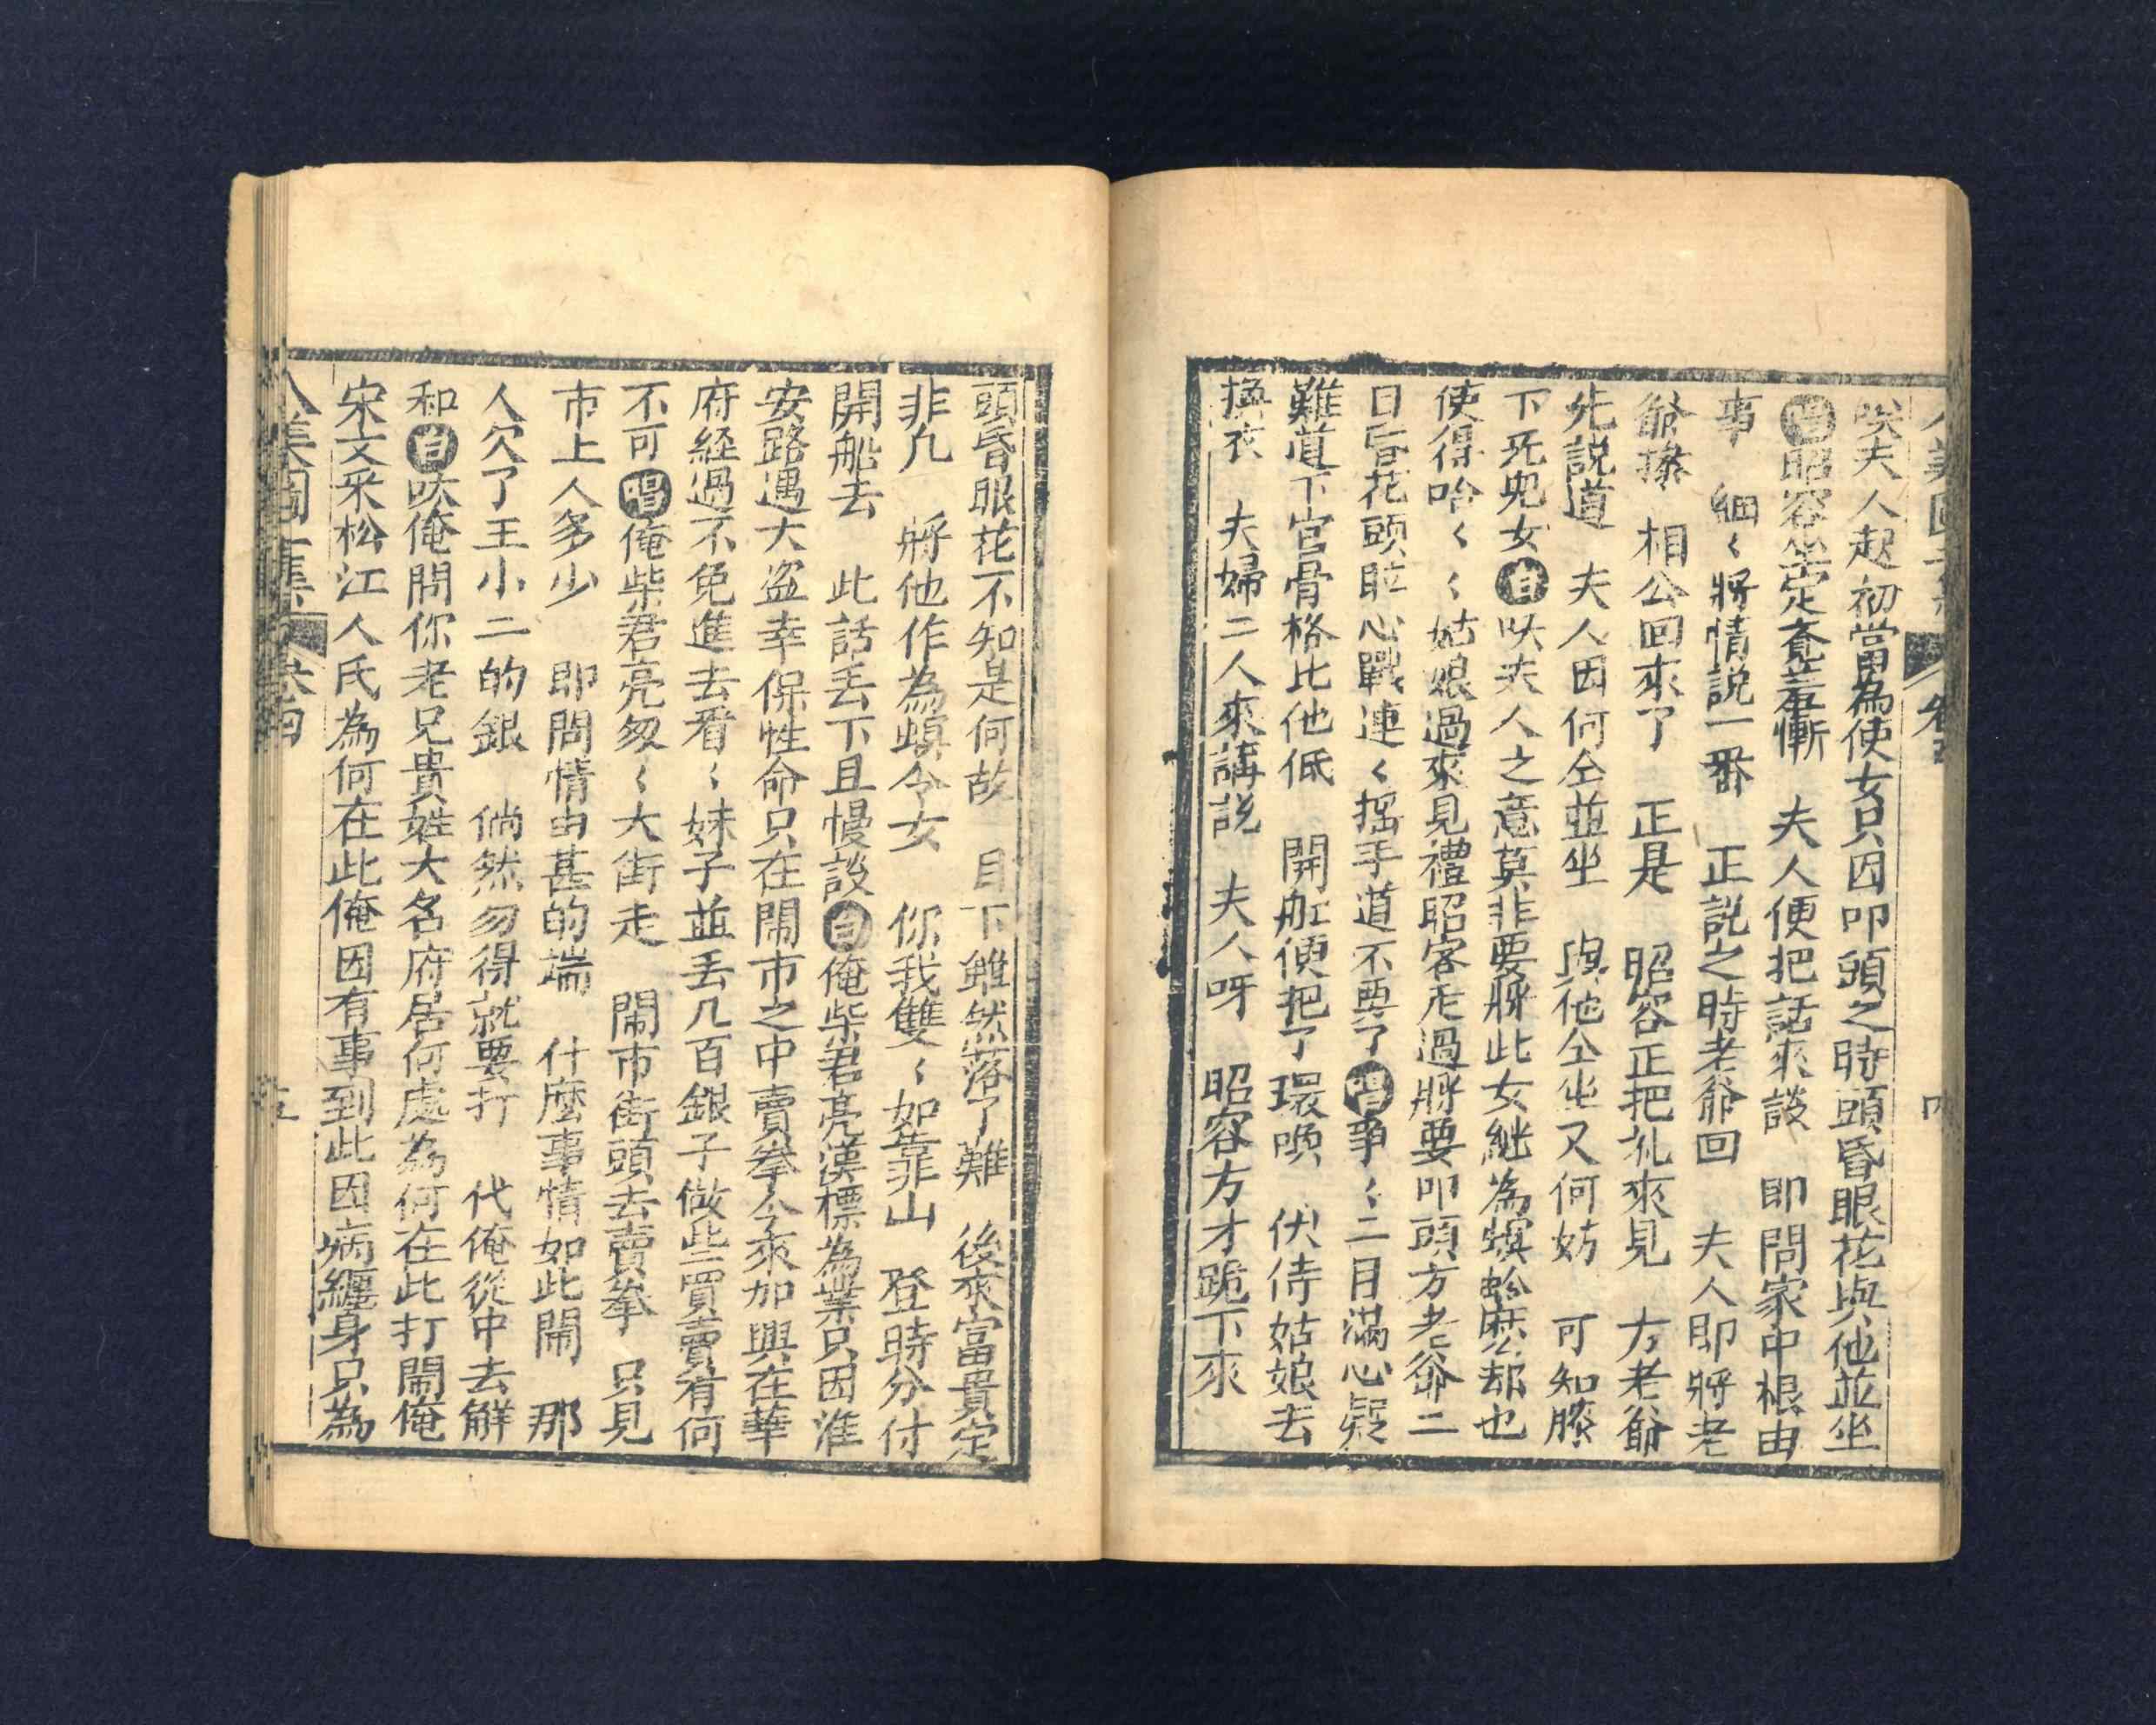 夫人起初當爲使女只因叩頭之時頭昏眼花與他並坐
唱昭容坐定着羞慚　夫人便把話來談　即問家中根由
事　細〻將情説一番　正説之時老爺回　夫人即將老
爺接　相公回來了　正是　昭容正把礼來見　方老爺
先説道　夫人因何仝並坐　與他仝坐又何妨　可知膝
下死兒女白呋夫人之意莫非要將此女継為螟蛉麽却也
使得哈〻〻姑娘過來見禮昭容走過將要叩頭方老爺二
目昏花頭眩心戰連〻揺手道不要了唱爭〻二目滿心疑
難道下官骨格比他低　開舡便把了環喚　伏侍姑娘去
換衣　夫婦二人來講説　夫人呀　昭容方才跪下來
頭昏眼花不知是何故　目下雖然落了難　後來富貴定
非凢　將他作為螟令女　你我雙〻如靠山　登時分付
開船去　此話丢下且慢談白俺柴君亮漢標為業只因淮
安路遇大盗幸保性命只在鬧市之中賣拳今來加興在華
府経過不免進去看〻妹子並丢几百銀子做些買賣有何
不可唱俺柴君亮匆〻大街走　鬧市街頭去賣拳　只見
市上人多少　即問情由甚的端　什麼事情如此鬧　那
人欠了王小二的銀　倘然勿得就要打　代俺從中去解
和白呋俺問你老兄貴姓大名府居何處為何在此打鬧俺
宋文采松江人氏為何在此俺因有事到此因病纏身只為
八美圖二集　卷四　五